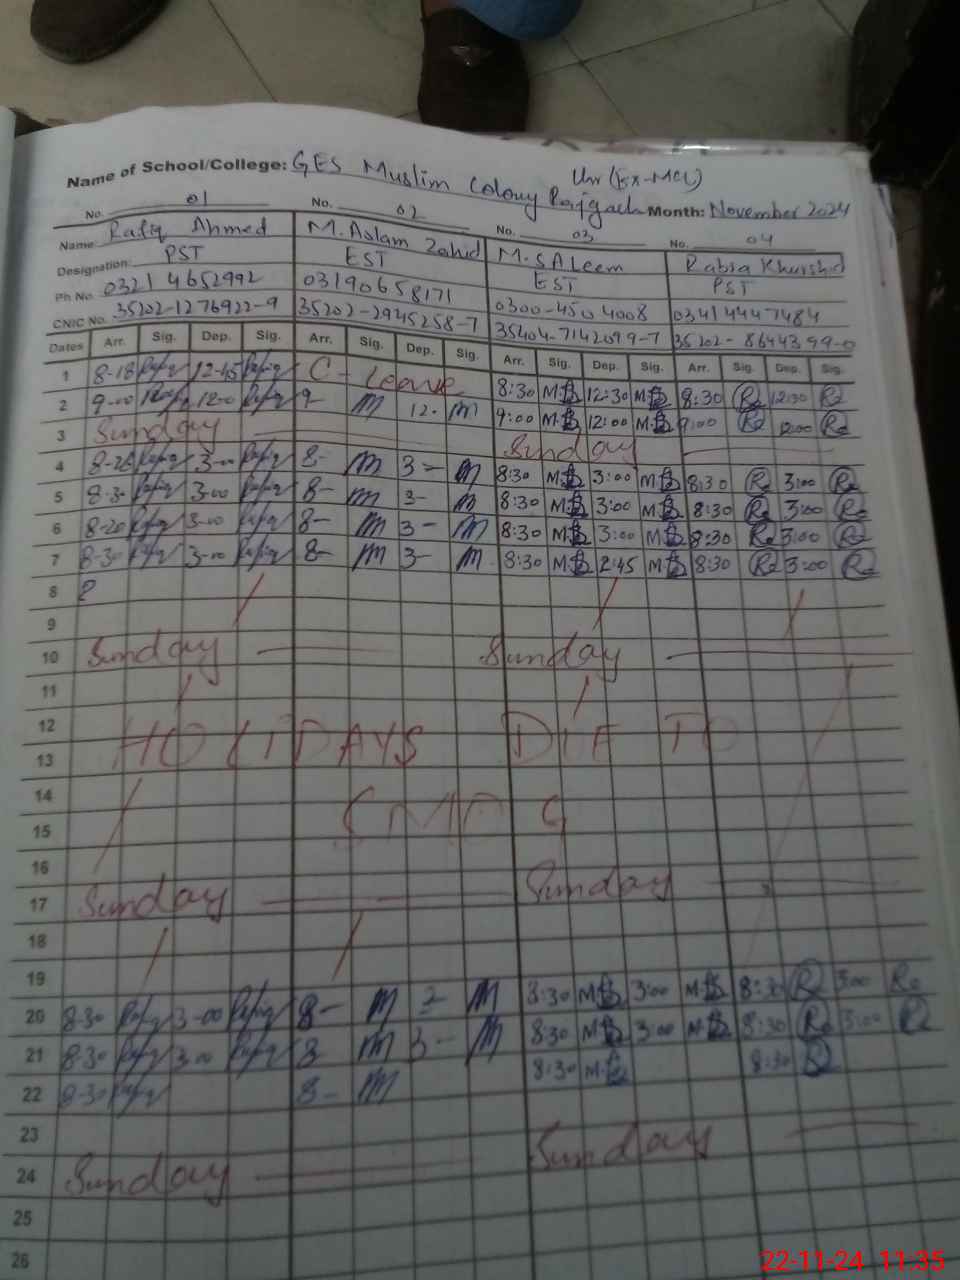 Name of School/College: GES Muslim Colony Rajgadh Lhr (Ex-MCL) Month: November 2024
No. 01 No. 02 No. 03 No. 04
Name: Rafiq Ahmed M. Aslam Zahid M. SALeem Rabia Khurshid
Designation: PST EST EST PST
Ph No. 0321 4652992 03190658171 0300-450 4008 0341 444 7484
CNIC No. 35202-1276922-9 35202-2945258-7 35404-7142099-7 35202-8644399-0
Dates Arr. Sig. Dep. Sig. Arr. Sig. Dep. Sig. Arr. Sig. Dep. Sig. Arr. Sig. Dep. Sig.
1 8-18 Rafiq 12-15 Rafiq C - Leave 8:30 M.B 12:30 M.B 8:30 12:30
2 9-00 Rafiq 12-00 Rafiq 9- M 12- M 9:00 M.B 12:00 M.B 9:00 12:00
3 Sunday Sunday
4 Rafiq 3-00 Rafiq 8- M 3- M 8:30 M.B 3:00 M.B 8:30 3:00
5 8-30 Rafiq 3-00 Rafiq 8- M 3- M 8:30 M.B 3:00 M.B 8:30 3:00
6 8-20 Rafiq 3-00 Rafiq 8- M 3- M 8:30 M.B 3:00 M.B 8:30 3:00
7 8-30 Rafiq 3-00 Rafiq 8- M 3- M 8:30 M.B 2:45 M.B 8:30 3:00
8
9
10 Sunday Sunday
11
12
13 HOLIDAYS DUE TO
14
15 SMOG
16
17 Sunday Sunday
18
19
20 8-30 Rafiq 3-00 Rafiq 8- M 3- M 8:30 M.B 3:00 M.B 8:30 3:00
21 8-30 Rafiq 3-00 Rafiq 8- M 3- M 8:30 M.B 3:00 M.B 8:30 3:00
22 8-30 Rafiq 8- M 8:30 M.B 8:30
23
24 Sunday Sunday
25
26
22-11-24 11:35